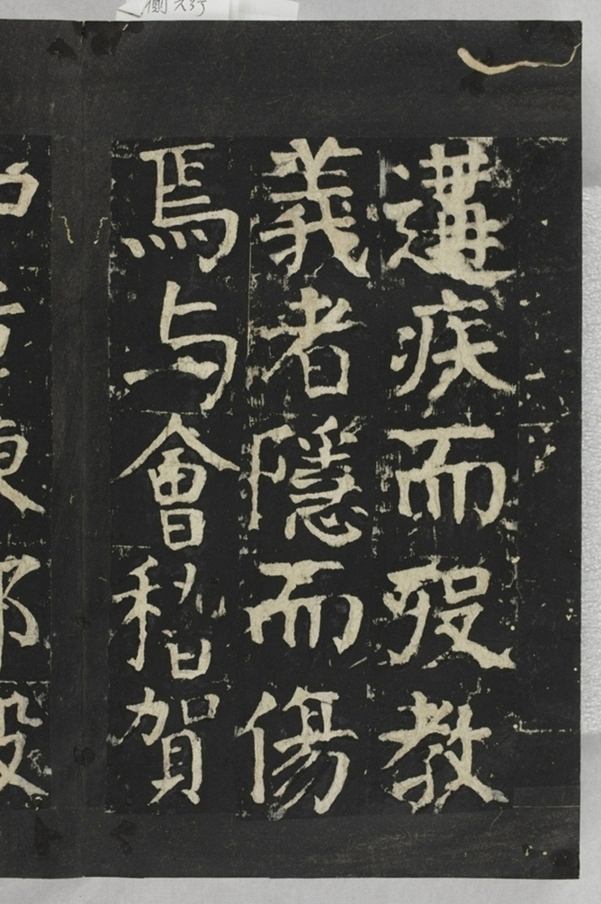 遘疾而歿教
義者隱而傷
焉与會稽賀